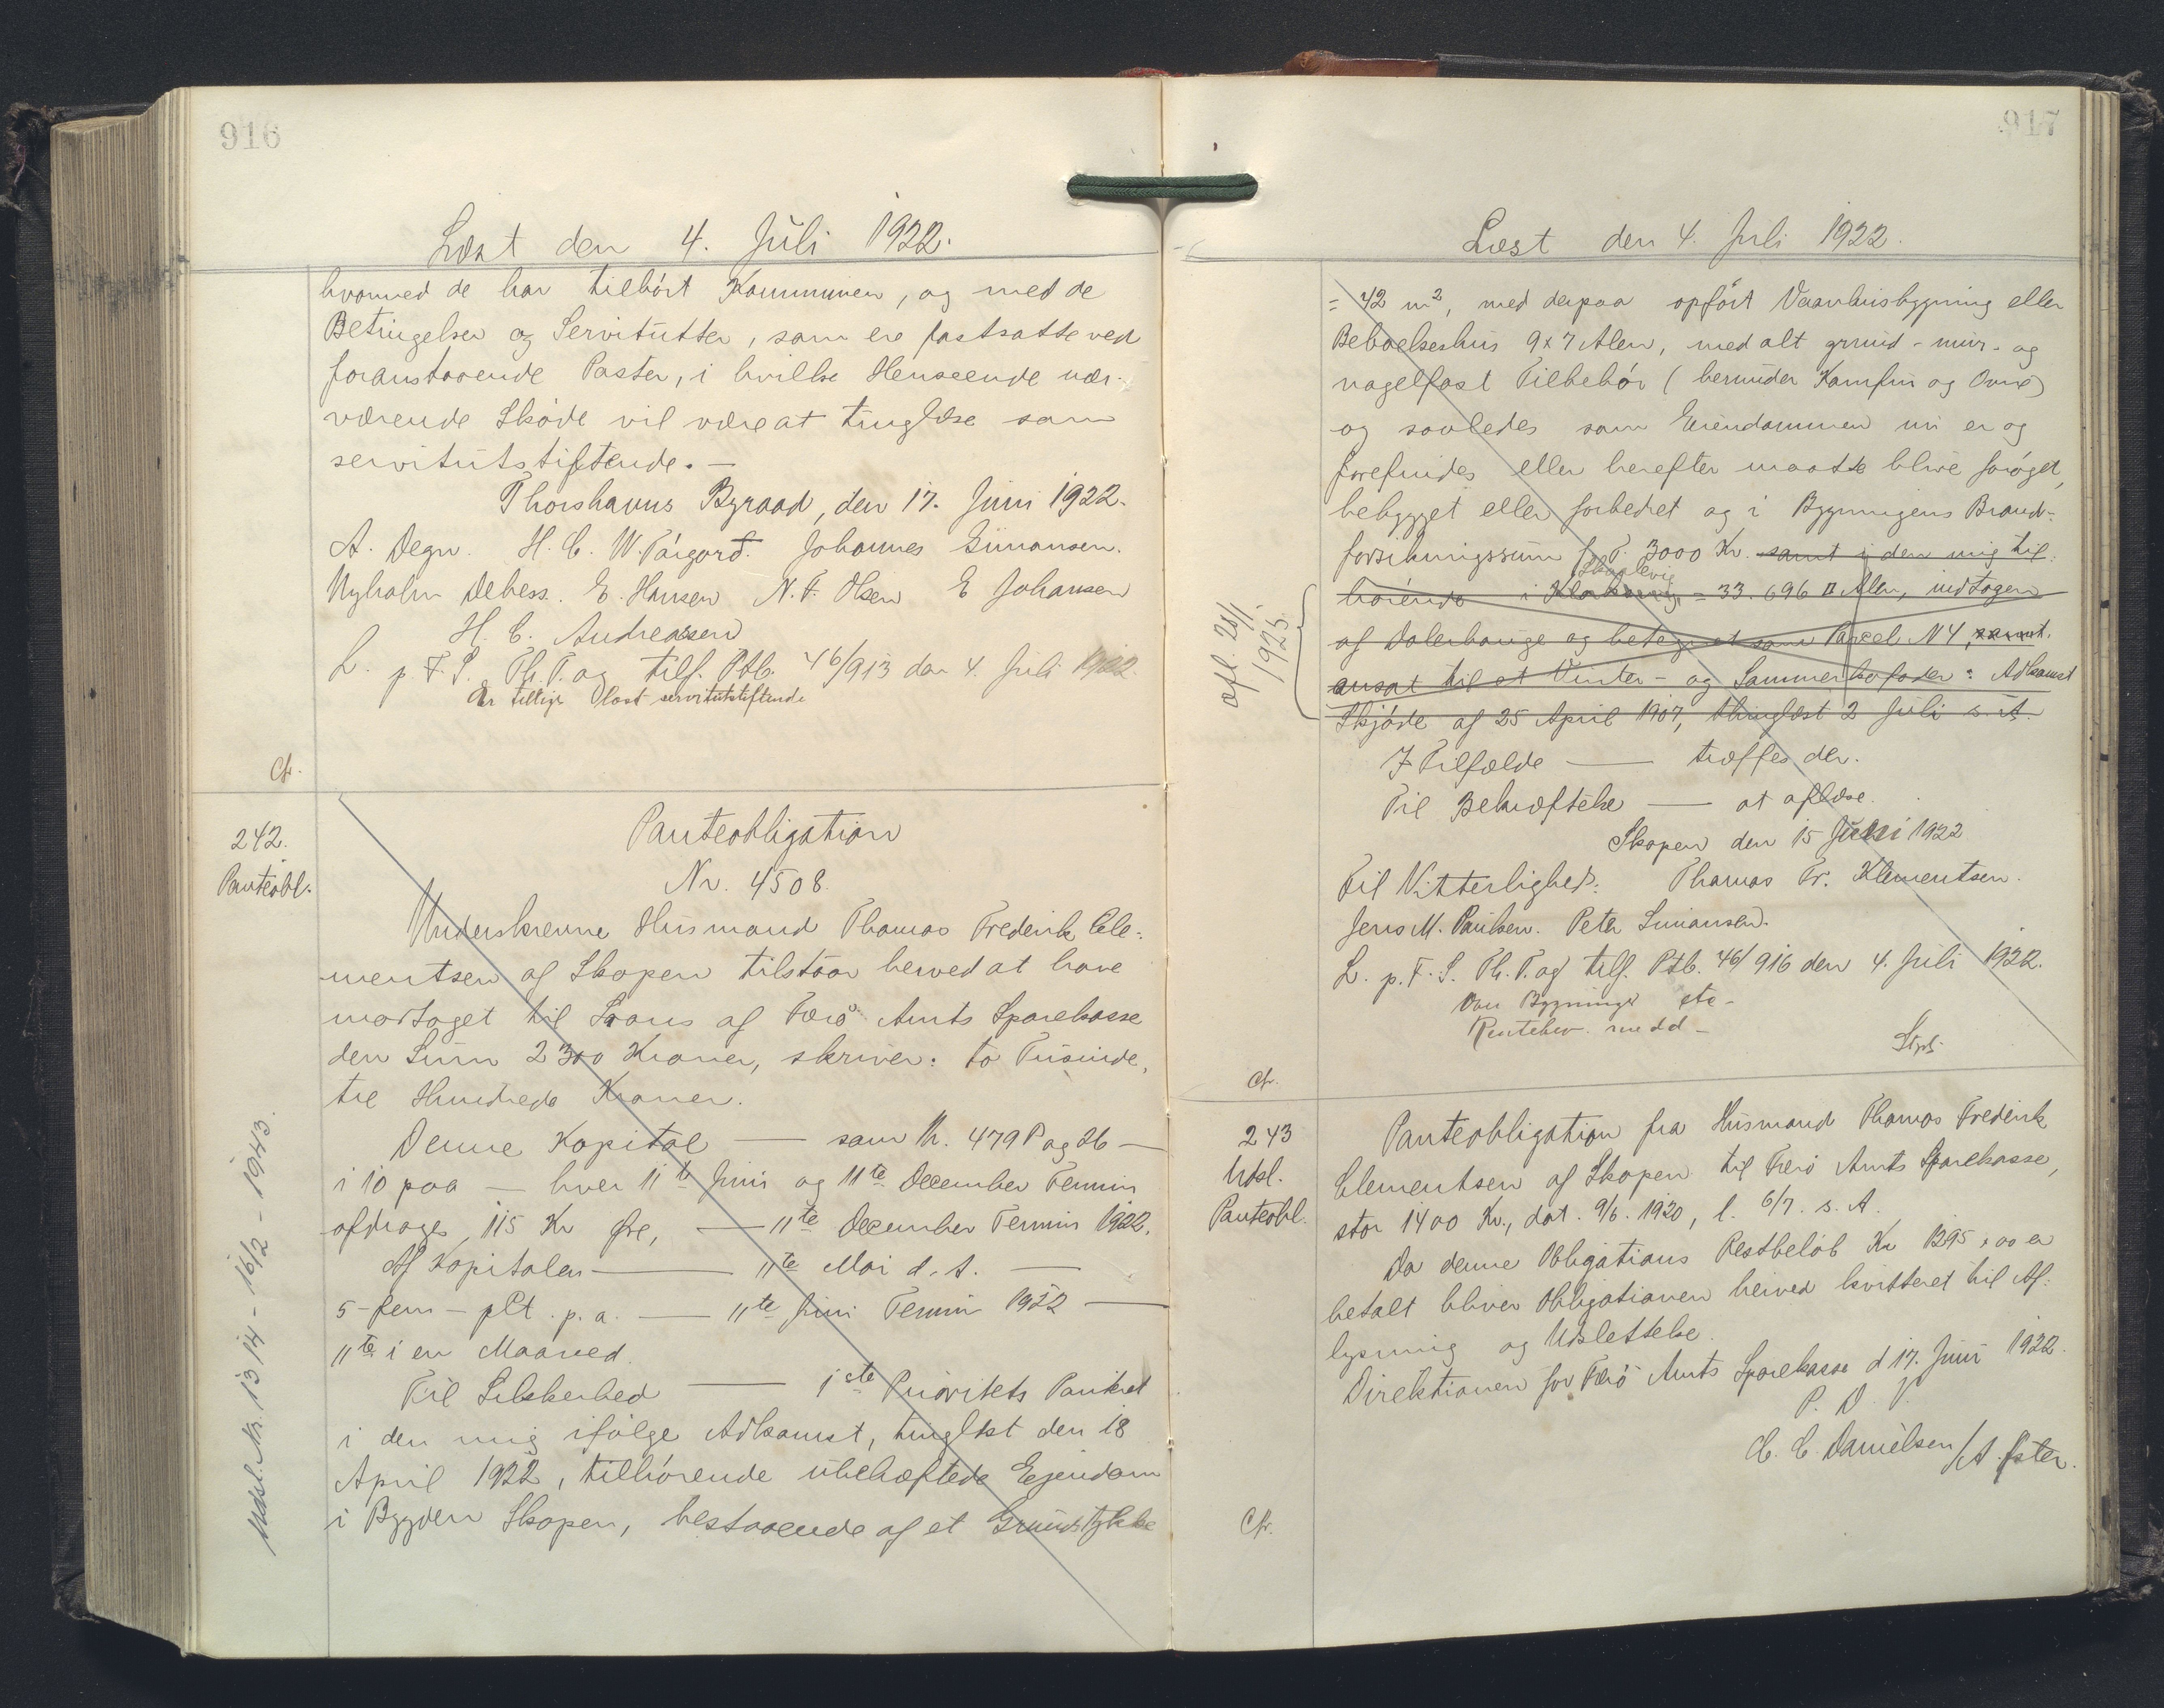 916
Læst den 4. Juli 1922.
hvormed de har tilhørt Kommunen, og med de
Betingelser og Servitutter, som ere fastsatte ved
foranstaaende Poster, i hvilke Henseende nær-
værende Skøde vil være at tinglæse som
servitutstiftende. —
Thorshavns Byraad, den 17. Juni 1922.
A. Degn. H. C. W. Tórgarð. Johannes Simonsen.
Nyholm Debess. E. Hansen N. F. Olsen E Johansen
H. C. Andreasen
L. p. F. S. Th. T. og tilf. Ptb. 46/913 den 4. Juli 1922.
Er tillige læst servitutstiftende
Cfr.
242.
Panteobl.
Panteobligation
Nr. 4508.
Underskrevne Husmand Thomas Frederik Cle-
mentsen af Skopen tilstaar herved at have
modtaget til Laans af Færø Amts Sparekasse
den Sum 2300 Kroner, skriver: to Tusinde,
tre Hundrede Kroner.
Denne Kapital — som N. 479 P og Lb —
i 10 paa — hver 11te Juni og 11te December Termin
afdrages 115 Kr Øre, — 11te December Termin 1922.
Af Kapitalen — 11te Mai d. A. —
5 - fem - pCt. p. a. — 11te Juni Termin 1922 —
11te i en Maaned
Til Sikkerhed — 1ste Prioritets Panteret
i den mig ifølge Adkomst, tinglæst den 18
April 1922, tilhørende ubehæftede Ejendom
i Bygden Skopen, bestaaende af et Grundstykke
Udsl. Nr. 1314 - 16/2 - 1943.
917
Læst den 4. Juli 1922.
= 42 m², med derpaa opført Vaanhusbygning eller
Beboelseshus 9 x 7 Alen, med alt grund- mur- og
nagelfast Tilbehør (herunder Komfur og Ovne)
og saaledes som Eiendommen nu er og
forefindes eller herefter maatte blive forøget,
bebygget eller forbedret og i Bygningens Brand-
forsikringssum p. T. 3000 Kr. samt i den mig til-
hørende i Skaalevig = 33.696 □ Alen, indtagen
af Dalerhauge og betegnet som Parcel N 4, samt
ansat til et Vinter- og Sommerkofoder: Adkomst
Skjøde af 25 April 1907, thinglæst 2 Juli s. A.
afl. 21/1 1925.
I Tilfælde — træffes der.
Til Bekræftelse — at aflæse.
Skopen den 15 Juni 1922
Til Vitterlighed: Thomas Fr. Klementsen.
Jens M. Poulsen. Peter Simonsen.
L. p. F. S. Th. T. og tilf. Ptb. 46/916 den 4. Juli 1922.
Om Bygninger etc -
Rentebev. medd -
Cfr.
243
Udsl.
Panteobl.
Panteobligation fra Husmand Thomas Frederik
Clementsen af Skopen til Færø Amts Sparekasse,
stor 1400 Kr., dat. 9/6. 1920, l. 6/7. s. A.
Da denne Obligations Restbeløb Kr 1295,00 er
betalt bliver Obligationen herved kvitteret til Af-
lysning og Udslettelse.
Direktionen for Færø Amts Sparekasse d 17. Juni 1922.
P. D. V.
C. C. Danielsen /A. Øster.
Cfr.